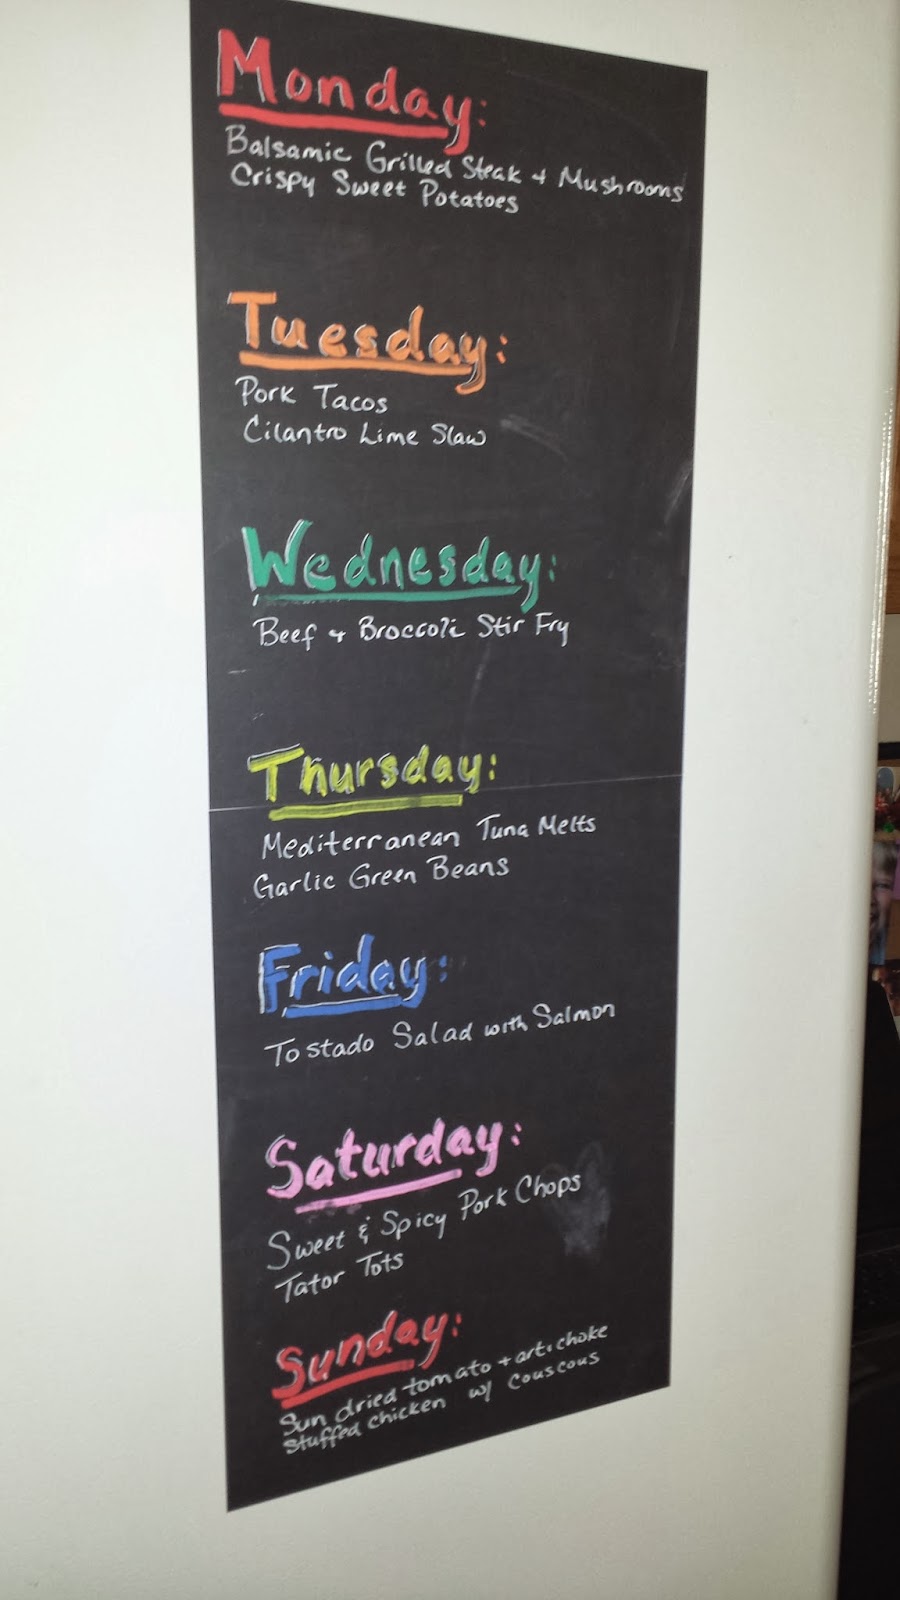 Monday:
Balsamic Grilled Steak + Mushrooms
Crispy Sweet Potatoes
Tuesday:
Pork Tacos
Cilantro Lime Slaw
Wednesday:
Beef + Broccoli Stir Fry
Thursday:
Mediterranean Tuna Melts
Garlic Green Beans
Friday:
Tostado Salad with Salmon
Saturday:
Sweet & Spicy Pork Chops
Tator Tots
Sunday:
Sun dried tomato + artichoke
stuffed chicken w/ couscous